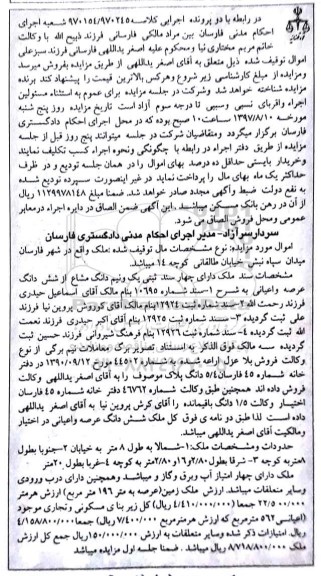 در رابطه با دو پرونده اجرایی کلاسه ۹۷۰۱۵۴/۹۷۰۲۴۵ شعبه اجرای
احکام مدنی فارسان بین مراد مالکی فارسانی فرزند ذبیح الله با وکالت
خانم مریم مختاری نیا ومحکوم علیه اصغر یداللهی فارسانی فرزند سبزعلی
اموال توقیف شده ذیل متعلق به آقای اصغر یداللهی از طریق مزایده بفروش میرسد
ومزایده از مبلغ کارشناسی زیر شروع وهرکس بالاترین قیمت را پیشنهاد کند برنده
مزایده شناخته خواهد شد وشرکت در جلسه مزایده برای عموم به استثناء مسئولین
اجراء واقربای نسبی وسببی تا درجه سوم آزاد است تاریخ مزایده روز پنج شنبه
مورخه ۱۳۹۷/۸/۱۰ ساعت ۱۰ صبح بوده که در محل اجرای احکام دادگستری
فارسان برگزار میگردد ومتقاضیان شرکت در جلسه میتوانند پنج روز قبل از جلسه
مزایده از طریق دفتر اجراء در رابطه با چگونگی ونحوه اجراء کسب تکلیف نمایند
وخریدار بایستی حداقل ده درصد بهای اموال را در همان جلسه تودیع و در ظرف
حداکثر یک ماه بهای مال را پرداخت نماید در غیر اینصورت سپرده تودیع شده
به نفع دولت ضبط وآگهی مجدد صادر خواهد شد. ضمنا مبلغ ۱۱۲۹۹۷۸۱۴۸ ریال
از آن در رهن بانک مسکن میباشد. این آگهی ضمن الصاق در دایره اجراء درمعابر
عمومی ومحل فروش الصاق می شود.
سردار سر آزاد- مدیر اجرای احکام مدنی دادگستری فارسان
اموال مورد مزایده: نوع مشخصات مال توقیف شده :ملک واقع در شهر فارسان
میدان سپاه نبش خیابان طالقانی کوچه ۱۴ میباشد.
مشخصات سند ملک دارای چهار سند ثبتی یک ونیم دانگ مشاع از شش دانگ
عرصه واعیانی به شرح ۱-سند شماره ۱۰۶۹۵ بنام مالک آقای اسماعیل حیدری
فرزند رحمت الله ۲-سند شماره ثبت ۱۲۹۲۴ بنام مالک آقای کوروش پروین نیا فرزند
علی ثبت گردیده ۳- سند شماره ثبت ۱۲۹۲۵ بنام آقای اکبر حیدری فرزند نعمت
الله ثبت گردیده ۴-سند شماره ثبت ۱۲۹۲۶ بنام فرهنگ شیروانی فرزند حسین ثبت
گردیده سه مالک فوق الذکر به استناد تصویر برگ معاملات نیم برگی از نوع
وکالت فروش بلا عزل اراعه شده به شماره ۴۴۵۰۲ مورخ ۱۳۹۰/۰۹/۱۲ در دفتر
خانه شماره ۴۵ فارسان ۴/۵ دانگ پلاک موصوف را به آقای اصغر یداللهی وکالت
فروش داده اند همچنین طبق وکالت شماره ۴۶۷۶۲ دفتر خانه شماره ۴۵ فارسان
اختیار وکالت ۱/۵ دانگ باقیمانده را آقای کرش پروین نیا به آقای اصغر یداللهی
داده است لذا طبق دو نامه ی فوق کل ملک شش دانگ عرصه واعیانی در اختیار
ومالکیت آقای اصغر یداللهی میباشد.
حدودات ومشخصات ملک:۱-شمالا به طول ۸ متر به خیابان ۲-جنوبا بطول
۸متربه کوچه ۳- شرقا بطول ۲/۸۰و۱۶و۲/۸۰متر به کوچه ۴-غربا بطول ۲۰متر
ملک دارای چهار امتیاز آب وبرق وگاز و میباشد وهمچنین دارای درب ورودی
وسایر متعلقات میباشد. ارزش ملک زمین(عرصه به متر ۱۹۶ متر مربع) ارزش هرمتر
۲۲/۵۰۰/۰۰۰ جمعا (۴/۴۱۰/۰۰۰/۰۰۰ ریال) کل زیر بنای مسکونی وتجاری موجود
(اعیانی۵۶۲ مترمربع که ارزش هرمترمربع ۷/۴۰۰/۰۰۰ ریال) جمعا۴/۱۵۸/۸۰۰/۰۰۰
ریال. امتیازات ذکر شده وسایر متعلقات به ارزش ۱۵۰/۰۰۰/۰۰۰ریال جمع کل ارزش
ملک ۸/۷۱۸/۸۰۰/۰۰۰ ریال میباشد . ضمنا جلسه اول مزایده میباشد